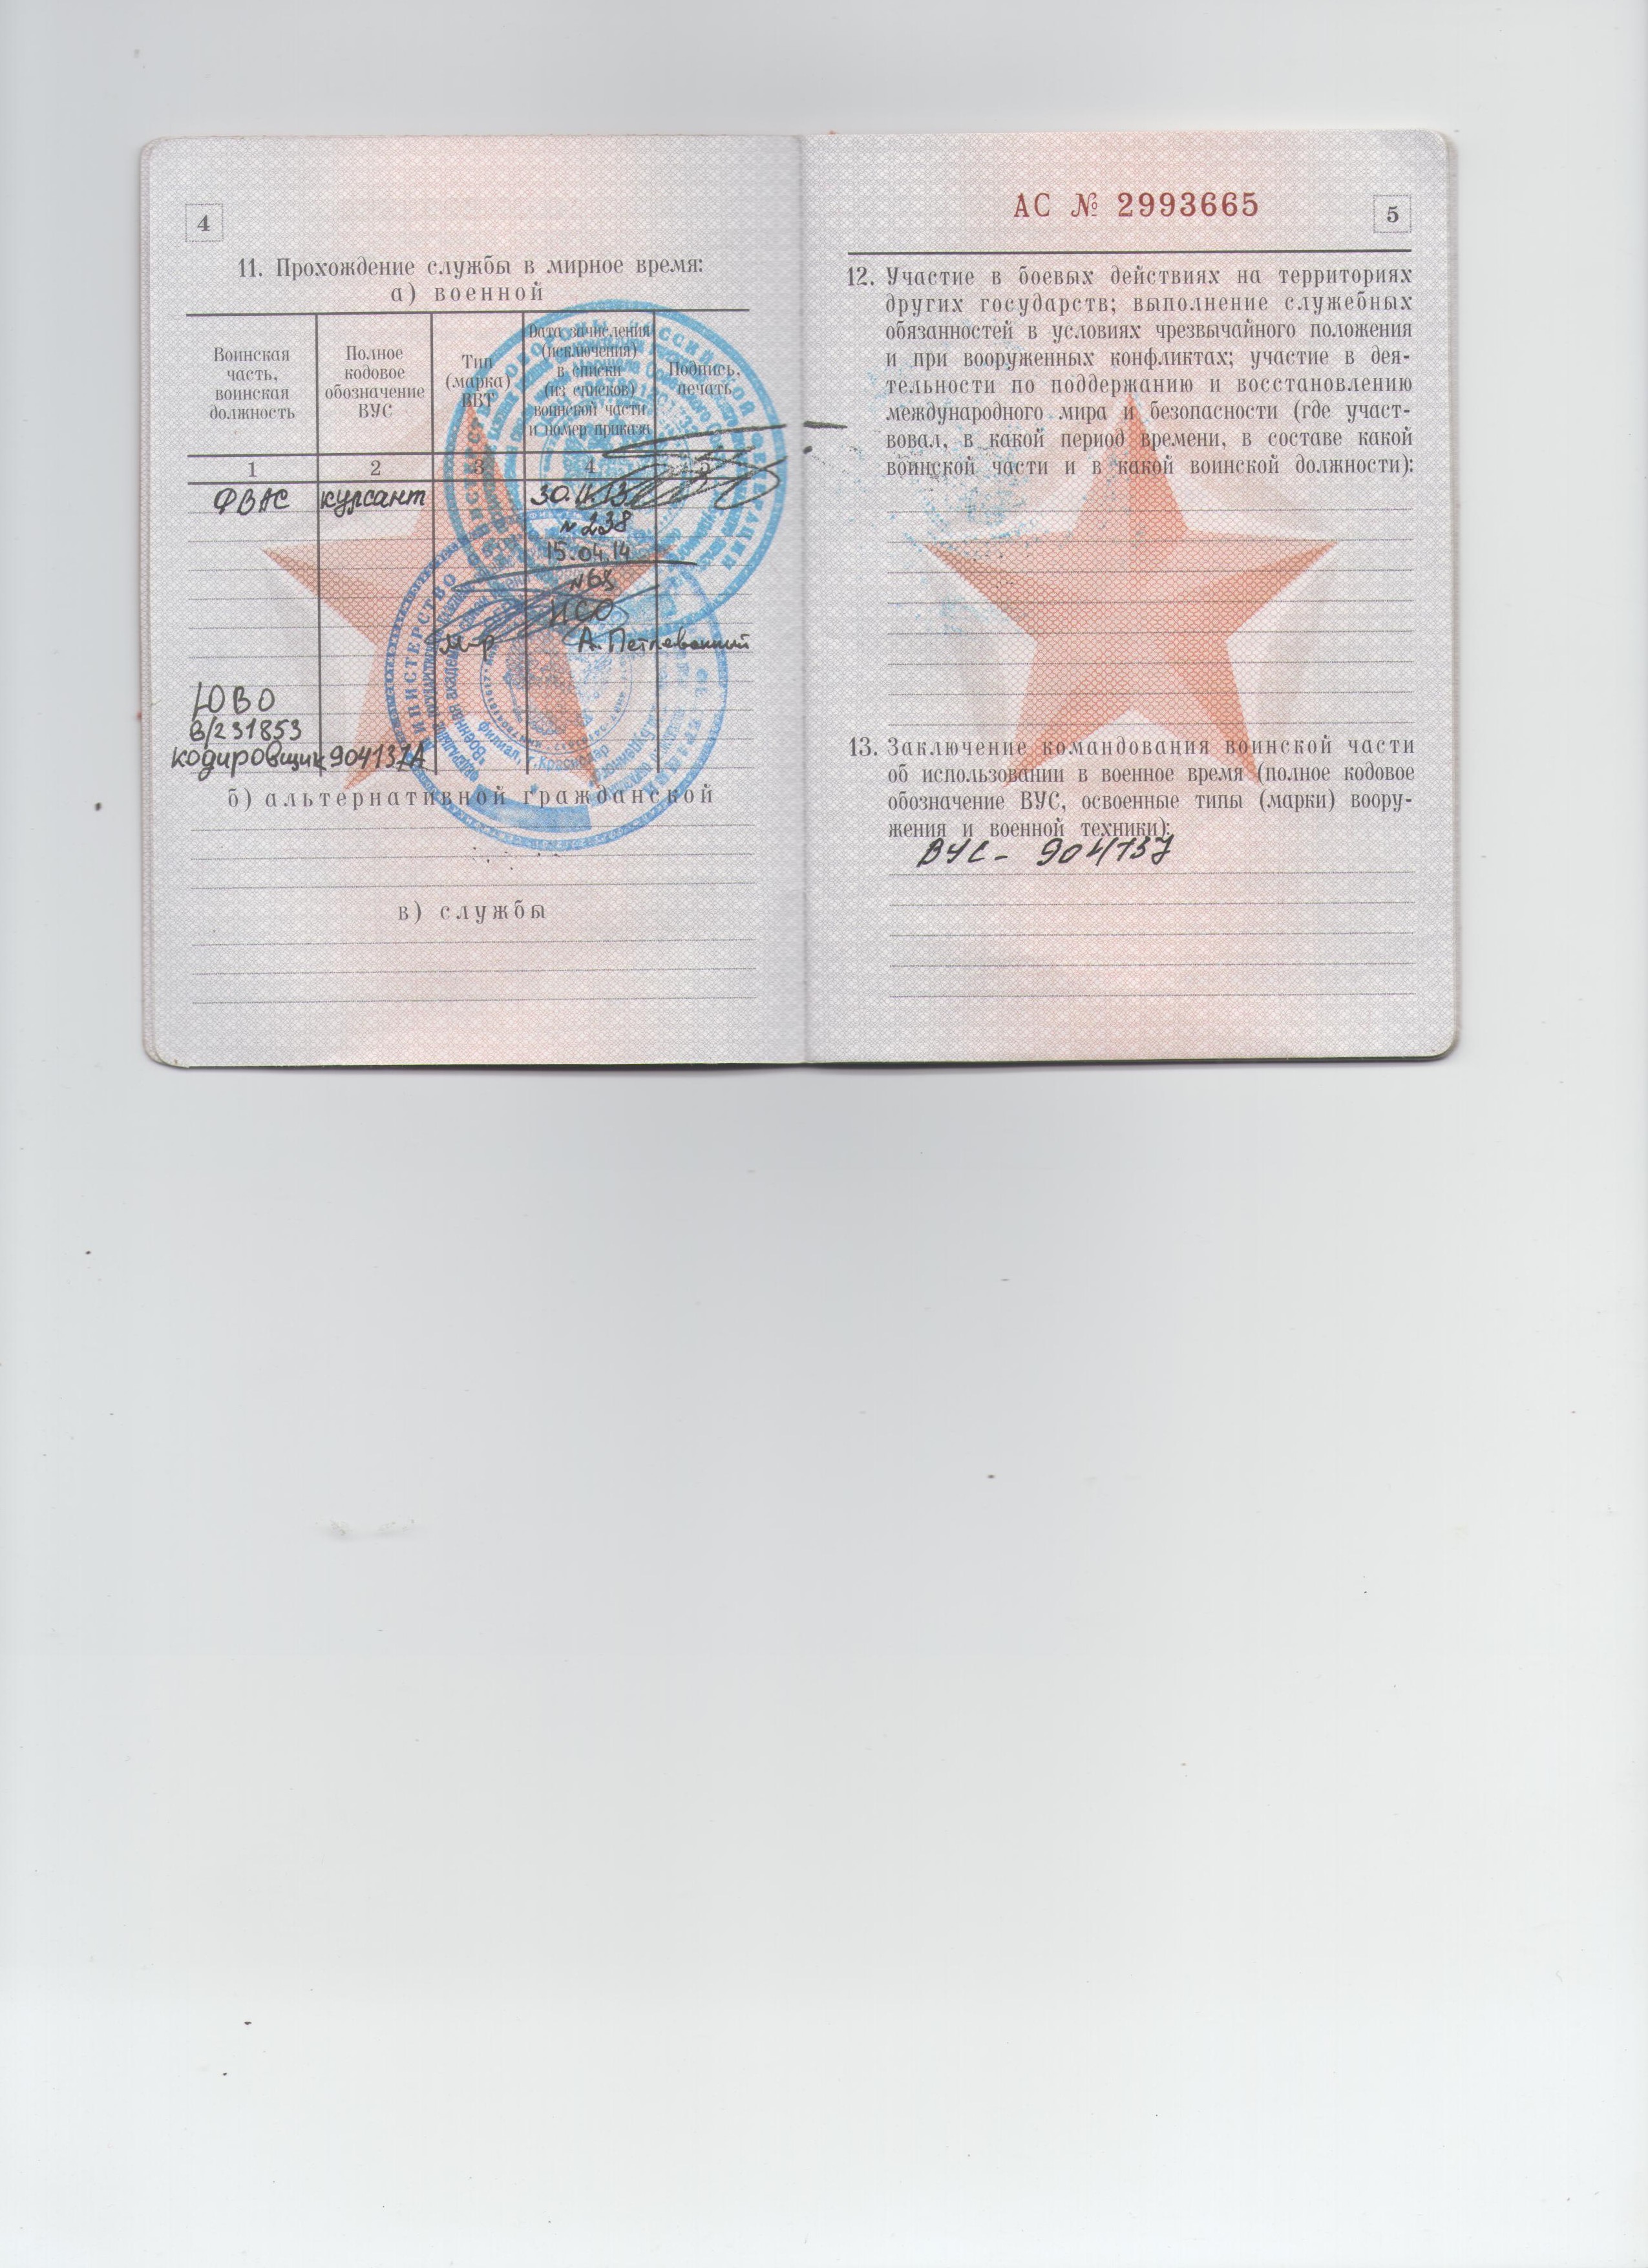 4
11. Прохождение службы в мирное время:
а) военной
Воинская часть, воинская должность
Полное кодовое обозначение ВУС
Тип (марка) ВВТ
Дата зачисления (исключения) в списки (из списков) воинской части и номер приказа
Подпись, печать
1 2 3 4 5
ФВАС курсант 30.11.13
№ 238
15.04.14
№ 68
м-р
ЮВО
В/ч 31853
кодировщик 904137А
б) альтернативной гражданской
в) службы
МИНИСТЕРСТВО
филиал, г. Краснодар
АС № 2993665
5
12. Участие в боевых действиях на территориях
других государств; выполнение служебных
обязанностей в условиях чрезвычайного положения
и при вооруженных конфликтах; участие в дея-
тельности по поддержанию и восстановлению
международного мира и безопасности (где участ-
вовал, в какой период времени, в составе какой
воинской части и в какой воинской должности):
13. Заключение командования воинской части
об использовании в военное время (полное кодовое
обозначение ВУС, освоенные типы (марки) воору-
жения и военной техники):
ВУС - 904137